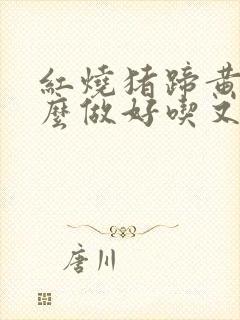 紅燒猪蹄黄
麼做好喫又
唐川